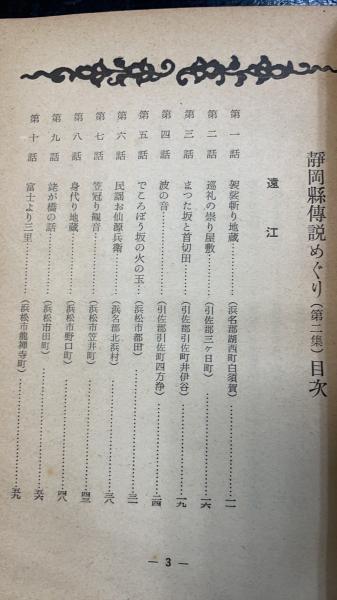 靜岡縣傳説めぐり(第二集)目次
遠江
第一話 袈裟斬り地蔵…………(浜名郡湖西町白須賀)…………一一
第二話 巡礼の祟り屋敷…………(引佐郡三ヶ日町)…………一六
第三話 まつた坂と首切田…………(引佐郡引佐町井伊谷)…………一九
第四話 波の音…………(引佐郡引佐町四方浄)…………二四
第五話 でころぼう坂の火の玉…(浜松市都田)…………三一
第六話 民謡お仙源兵衛…………(浜名郡北浜村)…………三八
第七話 笠冠り観音…………(浜松市笠井町)…………四三
第八話 身代り地蔵…………(浜松市野口町)…………四八
第九話 姥が橋の話…………(浜松市田町)…………五六
第十話 富士より三里…………(浜松市龍禅寺町)…………五九
— 3 —